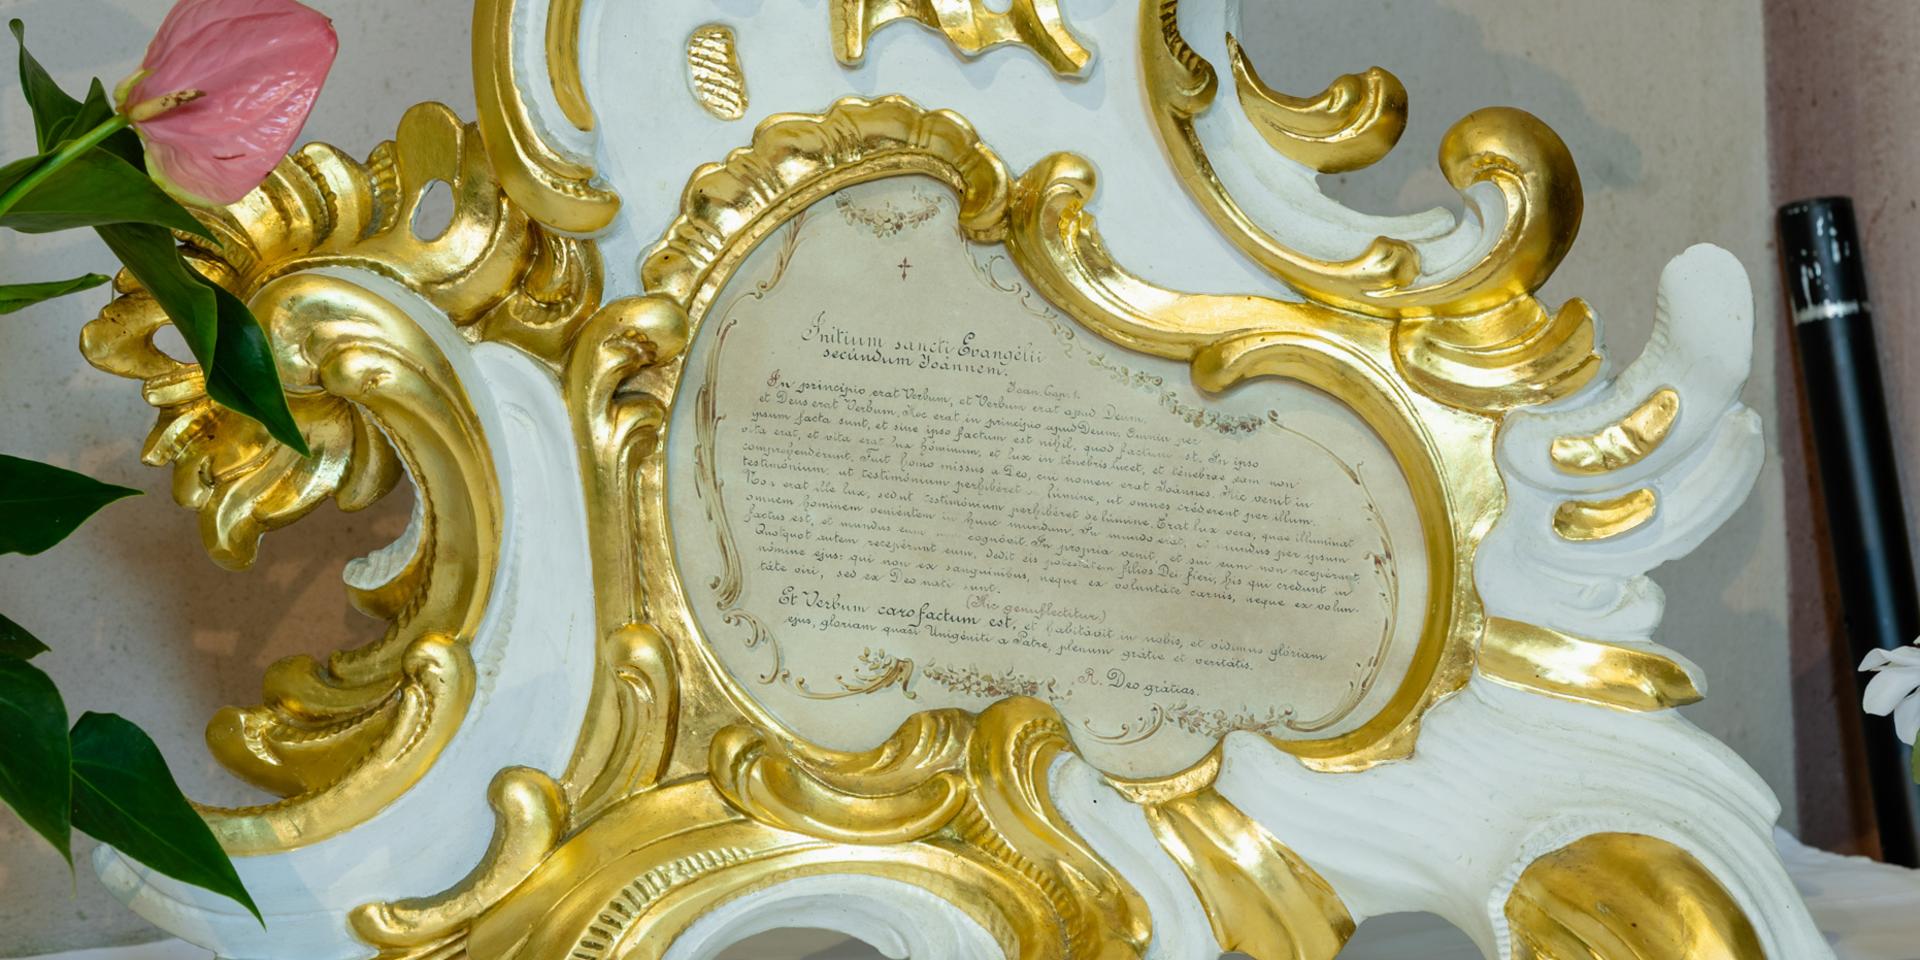 Initium sancti Evangélii
secúndum Joánnem.
Joan. Cap. 1.
In princípio erat Verbum, et Verbum erat apud Deum,
et Deus erat Verbum. Hoc erat in princípio apud Deum. Omnia per
ipsum facta sunt, et sine ipso factum est nihil, quod factum st. In ipso
vita erat, et vita erat lux hóminum, et lux in ténebris lucet, et ténebrae eam non
comprehendérunt. Fuit homo missus a Deo, cui nomen erat Joánnes. Hic venit in
testimónium, ut testimónium perhibéret lúmine, ut omnes créderent per illum.
erat ille lux, sed ut testimónium perhibéret de lúmine. Erat lux vera, quae illuminat
omnem hóminem venientem in hunc mundum. In mundo erat, mundus per ipsum
factus est, et mundus eum cognóvit. In propria venit, et sui eum non recepérunt.
Quotquot autem recepérunt eum, dedit eis potestátem fílios Dei fíeri, his qui credunt in
nómine ejus: qui non ex sanguínibus, neque ex voluntáte carnis, neque ex volun-
táte viri, sed ex Deo nati sunt.
(Hic genuflectitur)
Et Verbum caro factum est, et habitávit in nobis, et vídimus glóriam
ejus, glóriam quasi Unigéniti a Patre, plenum grátie et veritátis.
R. Deo grátias.